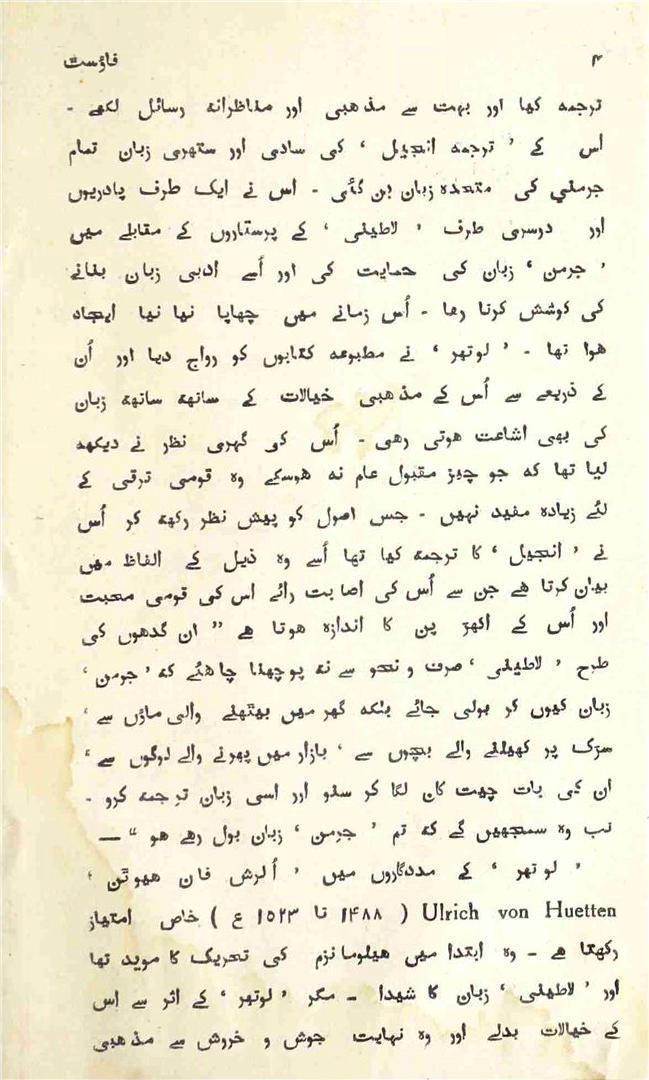 ۴ فاؤست
ترجمہ کیا اور بہت سے مذہبی اور مناظرانہ رسائل لکھے -
اس کے ' ترجمہ انجیل ' کی سادی اور ستھری زبان تمام
جرمنی کی متحدہ زبان بن گئی - اس نے ایک طرف پادریوں
اور دوسری طرف ' لاطینی ' کے پرستاروں کے مقابلے میں
' جرمن ' زبان کی حمایت کی اور اُسے ادبی زبان بنانے
کی کوشش کرتا رہا - اُس زمانے میں چھاپا نیا نیا ایجاد
ہوا تھا - ' لوتھر ' نے مطبوعہ کتابوں کو رواج دیا اور اُن
کے ذریعے سے اُس کے مذہبی خیالات کے ساتھ ساتھ زبان
کی بھی اشاعت ہوتی رہی - اُس کی گہری نظر نے دیکھ
لیا تھا کہ جو چیز مقبول عام نہ ہوسکے وہ قومی ترقی کے
لئے زیادہ مفید نہیں - جس اصول کو پیش نظر رکھ کر اُس
نے ' انجیل ' کا ترجمہ کیا تھا اُسے وہ ذیل کے الفاظ میں
بیان کرتا ہے جن سے اُس کی اصابت رائے اس کی قومی محبت
اور اُس کے اکھڑ پن کا اندازہ ہوتا ہے " ان گدھوں کی
طرح ' لاطینی ' صرف و نحو سے نہ پوچھنا چاہئے کہ ' جرمن '
زبان کیوں کر بولی جائے بلکہ گھر میں بیٹھنے والی ماؤں سے '
سڑک پر کھیلنے والے بچوں سے ' بازار میں پھرنے والے لوگوں سے '
ان کی بات چیت کان لگا کر سنو اور اسی زبان ترجمہ کرو -
تب وہ سمجھیں گے کہ تم ' جرمن ' زبان بول رہے ہو " —
' لوتھر ' کے مددگاروں میں ' اُلرش فان ہیوٹن '
Ulrich von Huetten ( ۱۴۸۸ تا ۱۵۲۳ ع ) خاص امتیاز
رکھتا ہے - وہ ابتدا میں ہیلومانزم کی تحریک کا موید تھا
اور ' لاطینی ' زبان کا شیدا - مگر ' لوتھر ' کے اثر سے اس
کے خیالات بدلے اور وہ نہایت جوش و خروش سے مذہبی